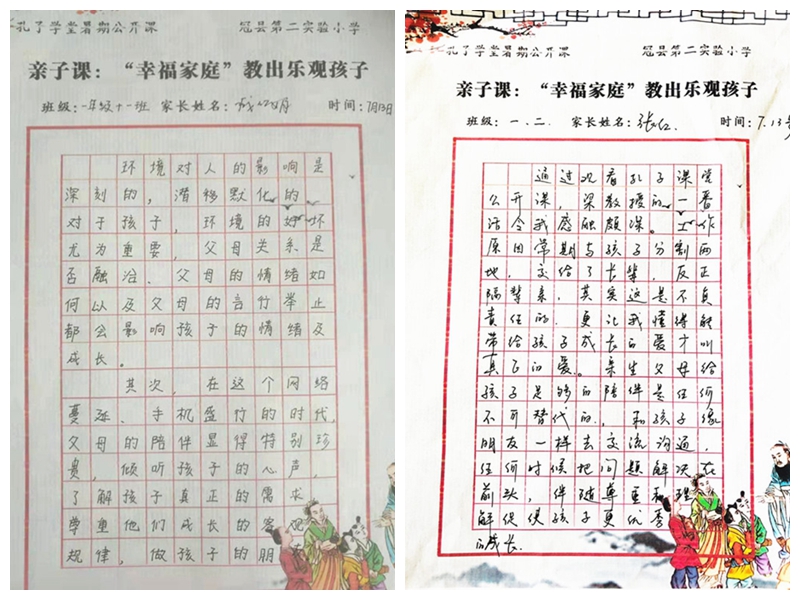 孔子学堂暑期公开课 冠县第二实验小学
亲子课：“幸福家庭”教出乐观孩子
班级：一年级十一班 家长姓名： 时间：7月13日
环境对人的影响是
深刻的，潜移默化的。
对于孩子，环境的好坏
尤为重要，父母关系是
否融洽、父母的情绪如
何以及父母的言行举止
都会影响孩子的情绪及
成长。
其次，在这个网络
蔓延、手机盛行的时代，
父母的陪伴显得特别珍
贵，倾听孩子的心声，
了解孩子真正的需求，
学重他们成长的客观
规律，做孩子的朋
孔子学堂暑期公开课 冠县第二实验小学
亲子课：“幸福家庭”教出乐观孩子
班级：一.二. 家长姓名：张红. 时间：7.13号
通过观看孔子课堂
公开课，梁教授的一番
话令我感触颇深。工作
原因常期与孩子分割两
地，交给了长辈，反正
隔辈亲，其实这是不负
责任的.更让我懂得能
带给孩子成长的爱才叫
真正的爱。亲生父母给
孩子足够的陪伴是任何
不可替代的.，和孩子像
朋友一样去交流沟通，
任何时候把问题解决在
前头，伴随尊重和理
解促使孩子更优秀
的成长.